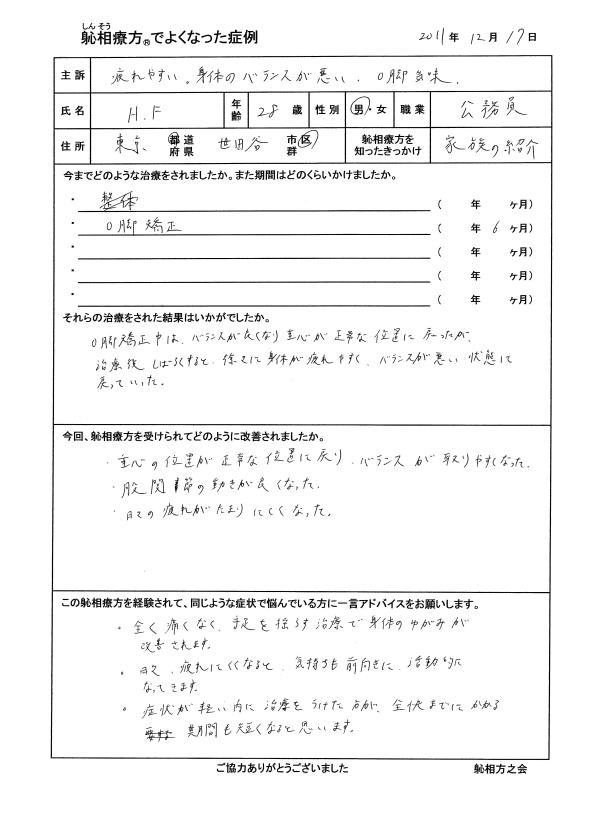 しんそう
躰相療方®でよくなった症例
2011年 12月 17日
主訴 疲れやすい。身体のバランスが悪い、O脚気味。
氏名 H.F 年齢 28歳 性別 男・女 職業 公務員
住所 東京 都道府県 世田谷 市区群 躰相療方を知ったきっかけ 家族の紹介
今までどのような治療をされましたか。また期間はどのくらいかけましたか。
・整体 ( 年 ヶ月)
・O脚矯正 ( 年 6ヶ月)
・ ( 年 ヶ月)
・ ( 年 ヶ月)
・ ( 年 ヶ月)
それらの治療をされた結果はいかがでしたか。
O脚矯正中は、バランスが良くなり重心が正常な位置に戻ったが、
治療後しばらくすると、徐々に身体が疲れやすく、バランスが悪い状態に
戻っていった。
今回、躰相療方を受けられてどのように改善されましたか。
・重心の位置が正常な位置に戻り、バランスが取りやすくなった。
・股関節の動きが良くなった。
・日々の疲れがたまりにくくなった。
この躰相療方を経験されて、同じような症状で悩んでいる方に一言アドバイスをお願いします。
・全く痛くなく、手足を揺らす治療で身体のゆがみが
改善されます。
・日々、疲れにくくなると、気持ちも前向きに、活動的に
なってきます。
・症状が軽い内に治療をうけた方が、全快までにかかる
期間も短くなると思います。
ご協力ありがとうございました
躰相方之会